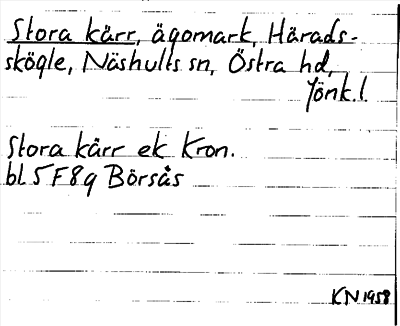 Stora kärr, ägomark, Härads-
skögle, Näshults sn, Östra hd,
Jönk.l.
Stora kärr ek Kron.
bl 5F8g Börsås
KN 1958